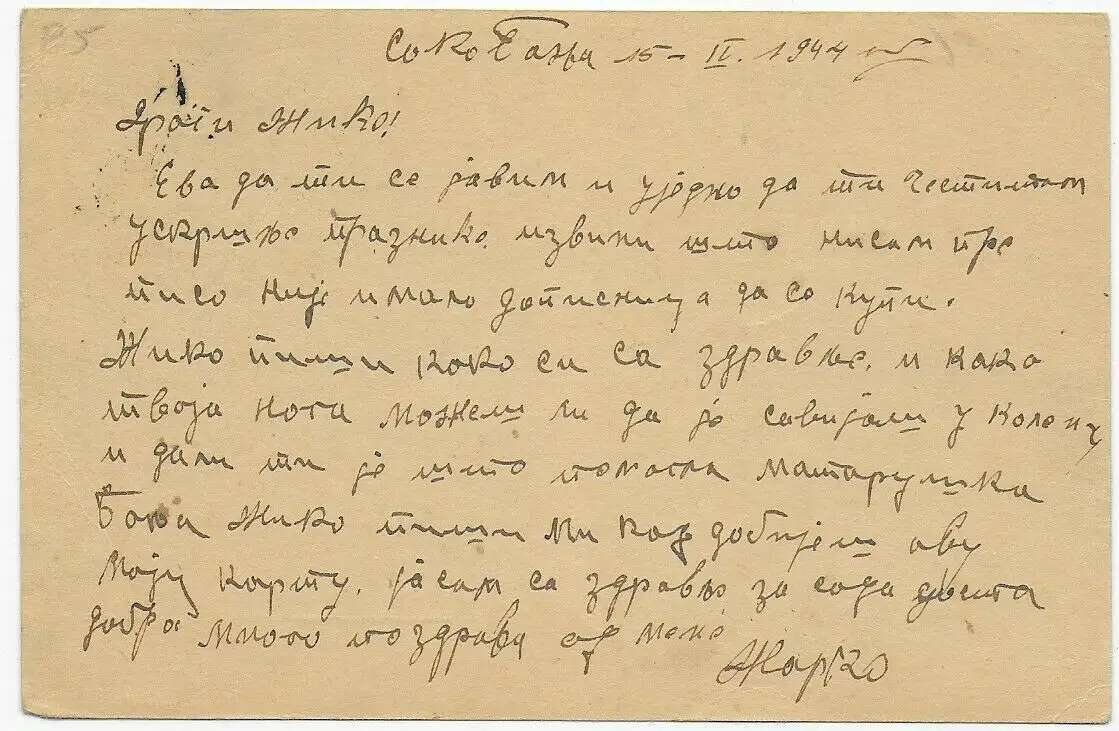 Соко Бања 15 – IV. 1944
Драги Жико!
Ева да ти се јавим и уједно да ти честитам
ускршње празнико. извини што нисам пре
писо није имало дописница да се купи.
Жико пиши како си са здравље. и како
твоја нога можеш ли да је савијаш у колену
и дали ти је што помогла Матарушка
Бања Жико пиши ми кад добијеш ову
моју карту. ја сам са здравље за сада доста
добра много поздрава од мене
Жарко